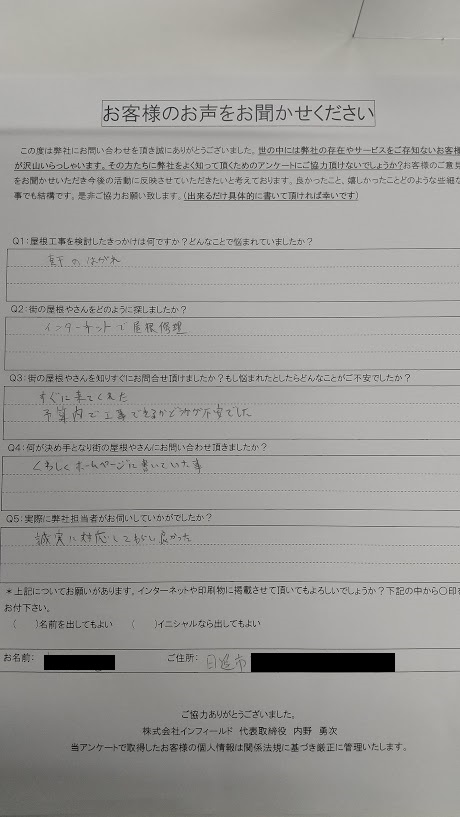 お客様のお声をお聞かせください
この度は弊社にお問い合わせを頂き誠にありがとうございました。世の中には弊社の存在やサービスをご存知ないお客様
が沢山いらっしゃいます。その方たちに弊社をよく知って頂くためのアンケートにご協力頂けないでしょうか?お客様のご意見
をお聞かせいただき今後の活動に反映させていただきたいと考えております。良かったこと、嬉しかったことどのような些細な
事でも結構です。是非ご協力お願い致します。(出来るだけ具体的に書いて頂ければ幸いです)
Q1:屋根工事を検討したきっかけは何ですか?どんなことで悩まれていましたか?
軒のはがれ
Q2:街の屋根やさんをどのように探しましたか?
インターネットで屋根修理
Q3:街の屋根やさんを知りすぐにお問合せ頂けましたか?もし悩まれたとしたらどんなことがご不安でしたか?
すぐに来てくれた
予算内で工事できるかどうかが不安でした
Q4:何が決め手となり街の屋根やさんにお問い合わせ頂きましたか?
くわしくホームページに書いていた事
Q5:実際に弊社担当者がお伺いしていかがでしたか?
誠実に対応してもらい良かった
*上記についてお願いがあります。インターネットや印刷物に掲載させて頂いてもよろしいでしょうか?下記の中から〇印を
お付下さい。
( )名前を出してもよい ( )イニシャルなら出してもよい
お名前: ご住所: 日進市
ご協力ありがとうございました。
株式会社インフィールド 代表取締役 内野 勇次
当アンケートで取得したお客様の個人情報は関係法規に基づき厳正に管理いたします。